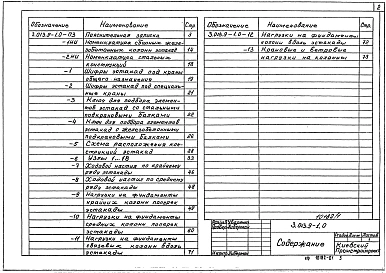 2
Обозначение Наименование Стр.
3.015.9-1.0-ПЗ Пояснительная записка 3
-1НИ Номенклатура сборных железобетонных колонн
эстакад 14
-2НИ Номенклатура стальных
конструкций 18
-1 Шифры эстакад под краны
общего назначения 19
-2 Шифры эстакад под специальные краны 21
-3 Ключ для подбора элементов
эстакад со стальными
подкрановыми балками 22
-4 Ключ для подбора элементов
эстакад с железобетонными
подкрановыми балками 26
-5 Схема расположения конструкций эстакад 28
-6 Узлы 1...18 33
-7 Ходовой настил по крайнему
ряду эстакады 46
-8 Ходовой настил по среднему
ряду эстакады 48
-9 Нагрузки на фундаменты
крайних колонн поперек
эстакады 49
-10 Нагрузки на фундаменты
средних колонн поперек
эстакады 60
-11 Нагрузки на фундаменты
связевых колонн вдоль
эстакады 71
Обозначение Наименование Стр.
3.015.9-1.0-12 Нагрузки на фундаменты
колонн вдоль эстакады 72
-13 Крановые и ветровые
нагрузки на колонны 73
3.015.9-1.0
Содержание
Киевский